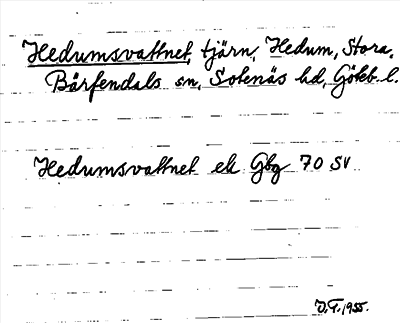 Hedumsvattnet, tjärn, Hedum, Stora,
Bärfendals sn, Sotenäs hd, Göteb. l.
Hedumsvattnet ek Gbg 70 SV
D.F. 1955.